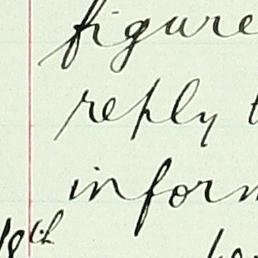 figure
reply t
inform
18th